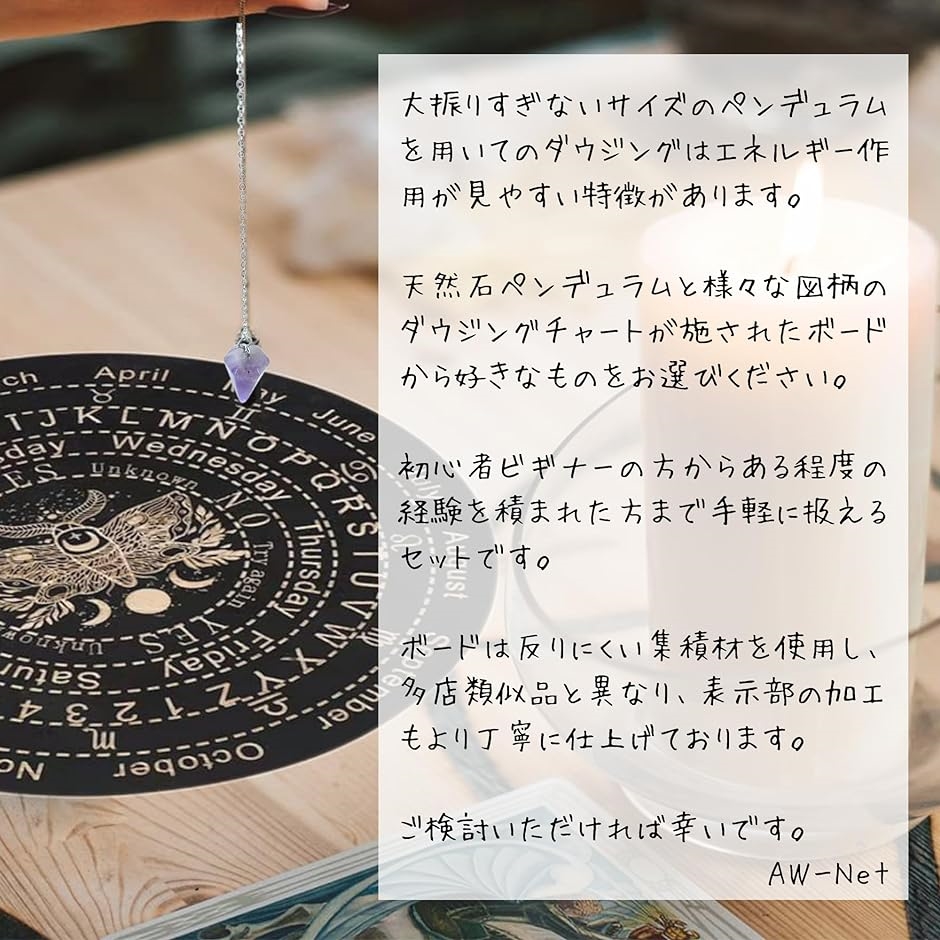 大振りすぎないサイズのペンデュラム
を用いてのダウジングはエネルギー作
用が見やすい特徴があります。
天然石ペンデュラムと様々な図柄の
ダウジングチャートが施されたボード
から好きなものをお選びください。
初心者ビギナーの方からある程度の
経験を積まれた方まで手軽に扱える
セットです。
ボードは反りにくい集積材を使用し、
多店類似品と異なり、表示部の加工
もより丁寧に仕上げております。
ご検討いただければ幸いです。
AW-Net
April
May
June
August
October
I J K L M N O P Q R S T U V W X Y Z
Wednesday
Thursday
Friday
Unknown
NO
Try again
YES
Unknown
1 2 3 4